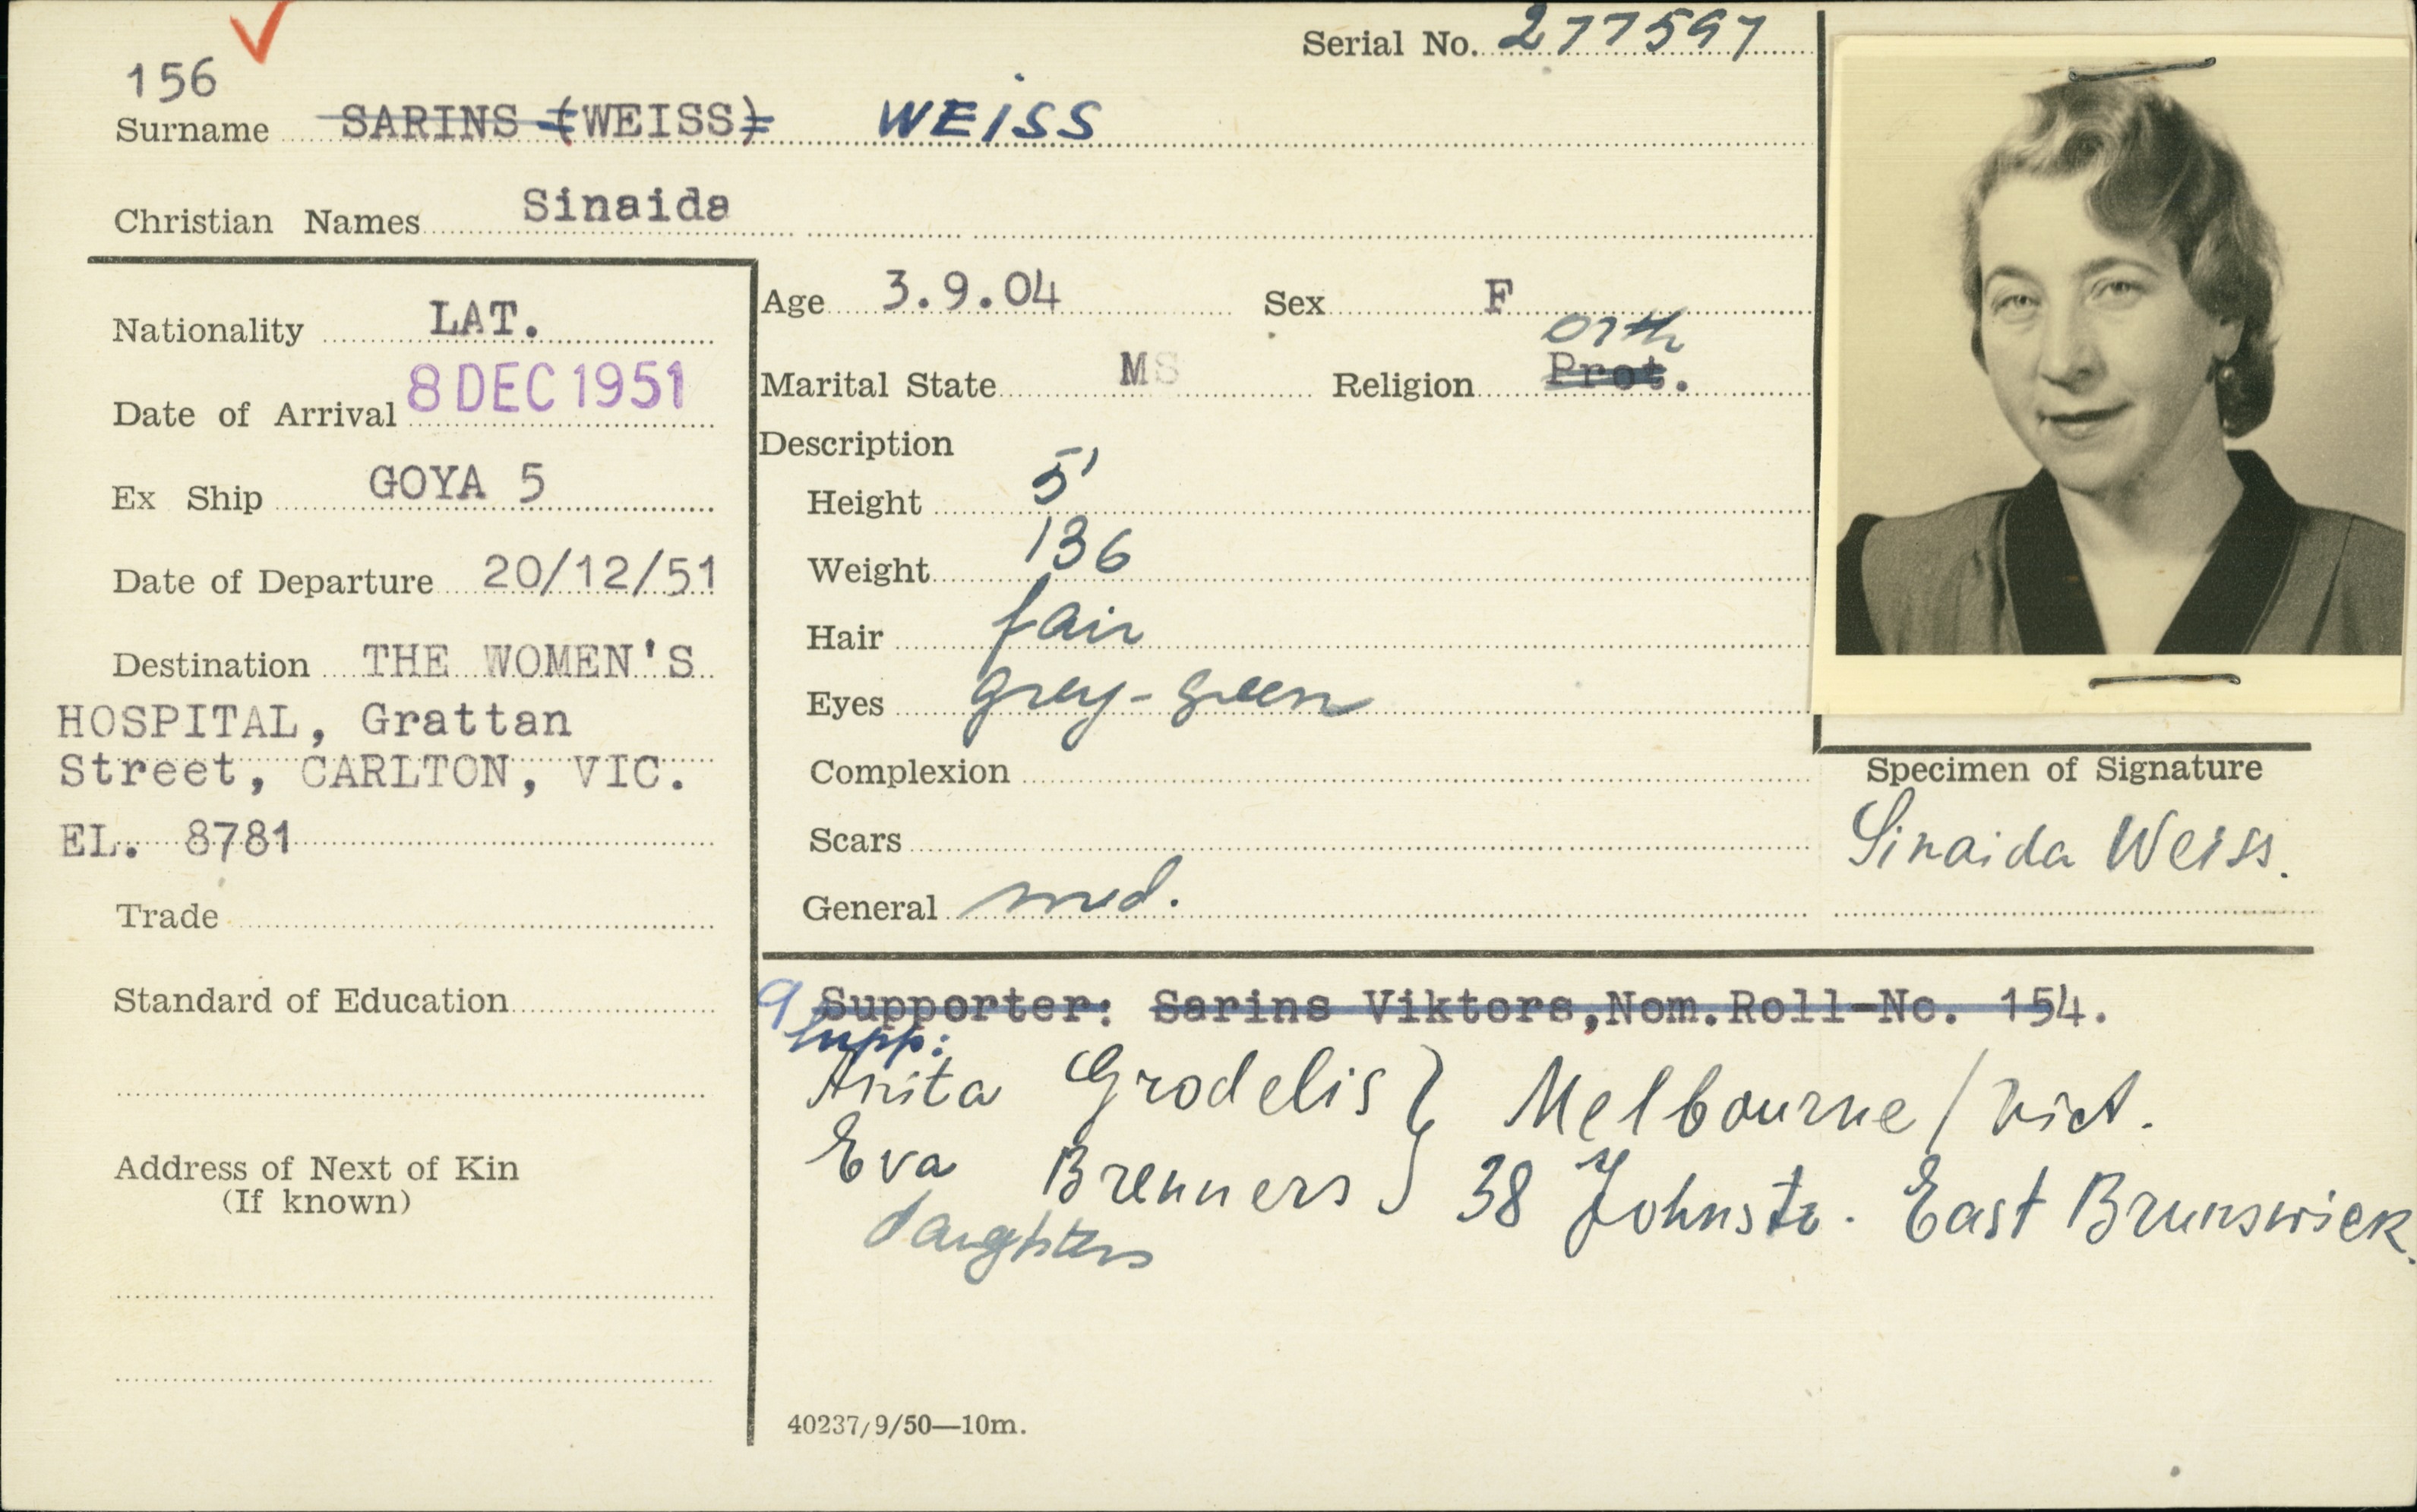 156
Serial No. 277597
Surname SARINS (WEISS) WEISS
Christian Names Sinaida
Nationality LAT.
Date of Arrival 8 DEC 1951
Ex Ship GOYA 5
Date of Departure 20/12/51
Destination THE WOMEN'S
HOSPITAL, Grattan
Street, CARLTON, VIC.
EL. 8781
Trade
Standard of Education
Address of Next of Kin
(If known)
Age 3.9.04 Sex F
orth
Marital State MS Religion Prot.
Description
Height 5'
Weight 136
Hair fair
Eyes grey-green
Complexion
Scars
General med.
Specimen of Signature
Sinaida Weiss.
9 Supporter: Sarins Viktors, Nom.Roll-No. 154.
Supp:
Anita Grodelis } Melbourne / Vict.
Eva Brenners } 38 Johnstr. East Brunswick.
daughters
40237/9/50—10m.